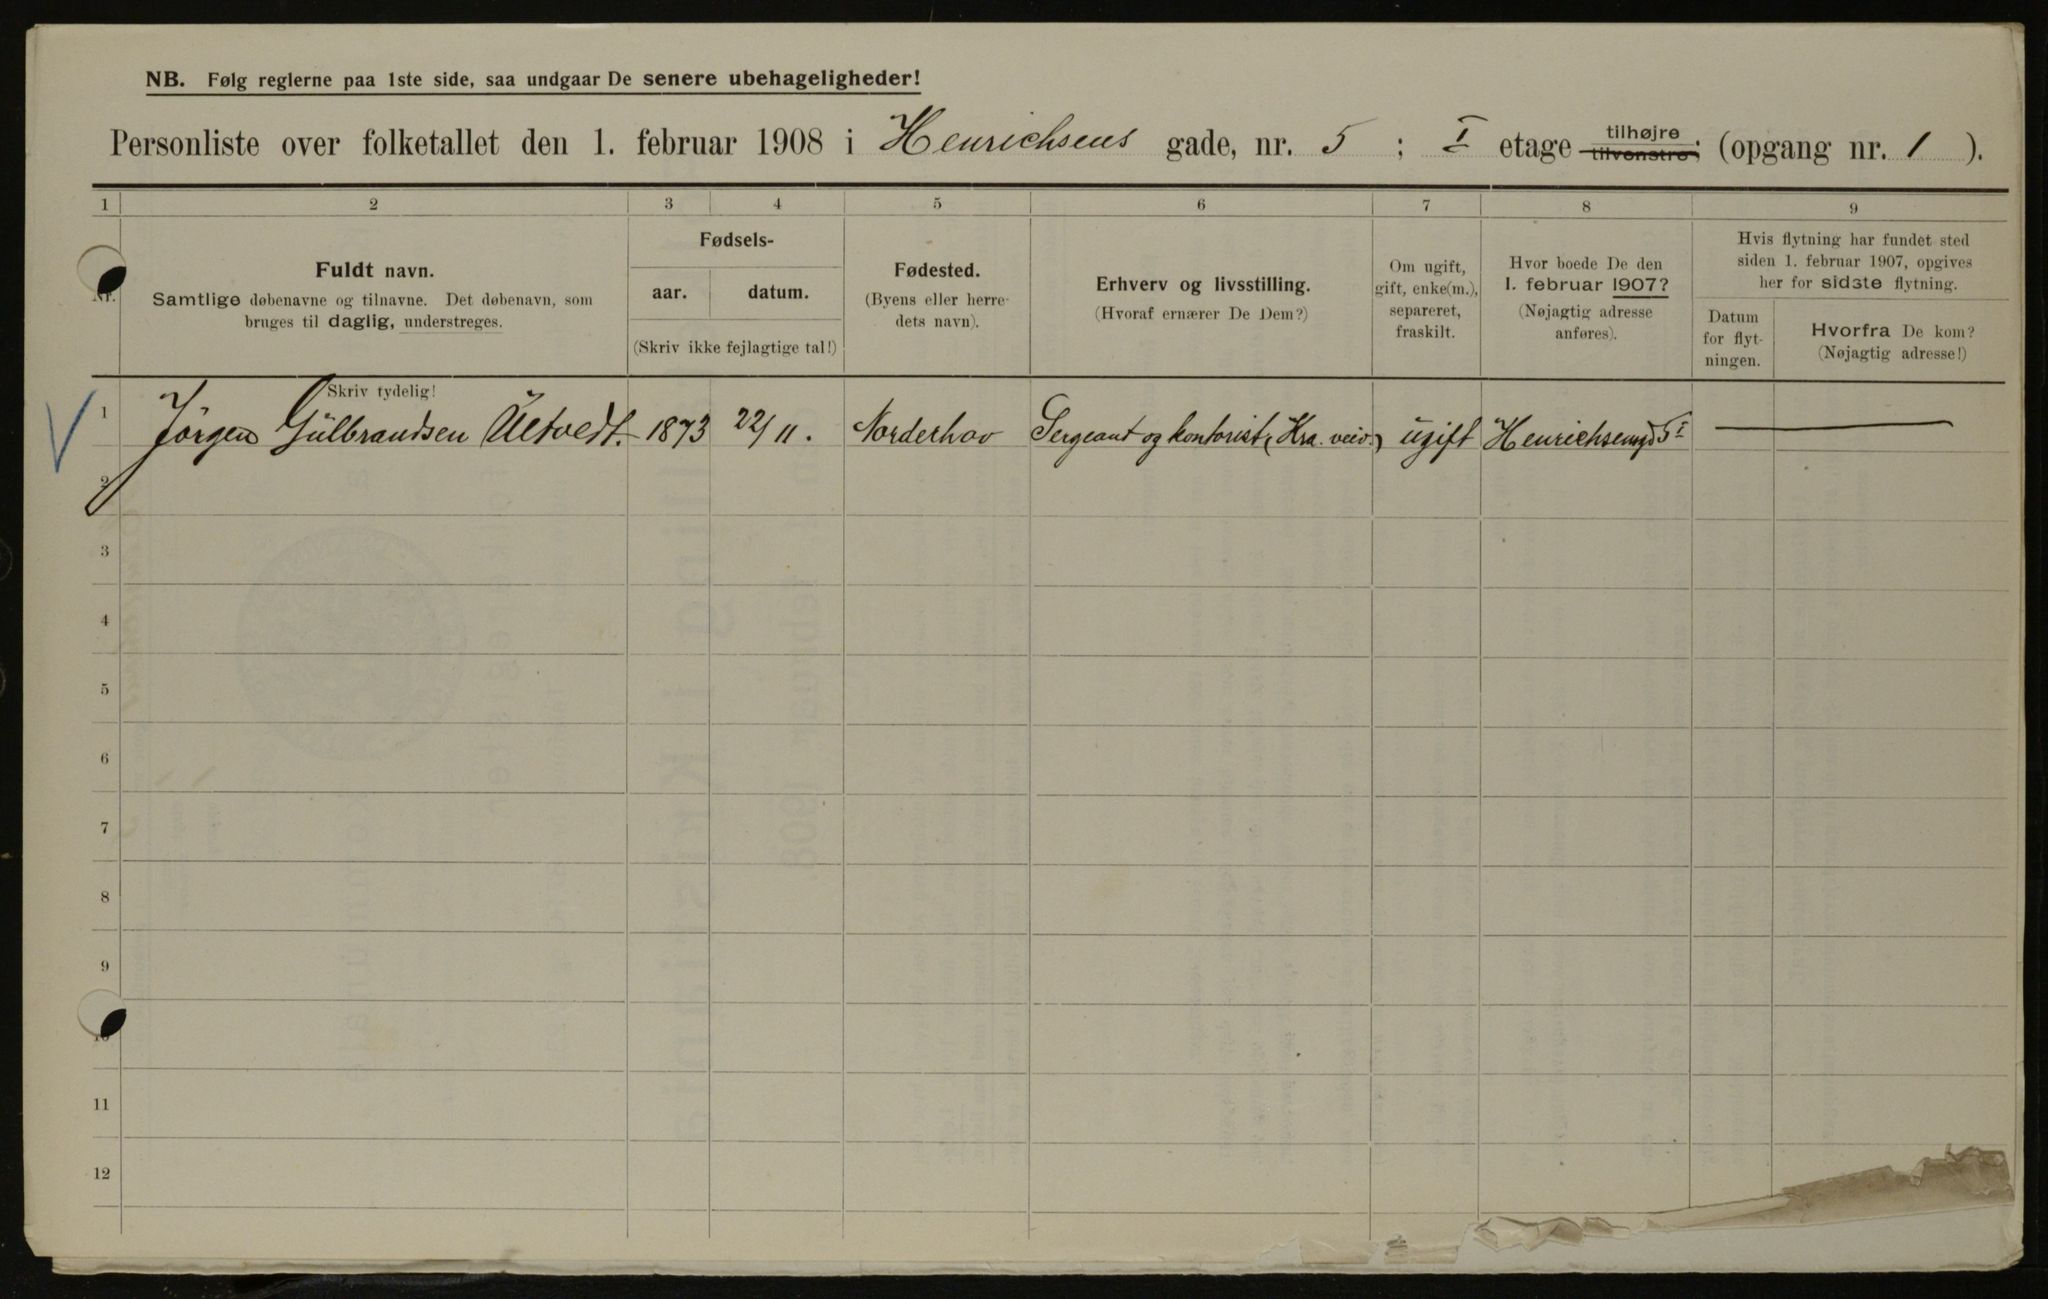 NB. Følg reglerne paa 1ste side, saa undgaar De senere ubehageligheder!
Personliste over folketallet den 1. februar 1908 i Henrichsens gade, nr. 5 ; I etage tilhøjre tilvenstre; (opgang nr. 1 ).
1 2 3 4 5 6 7 8 9
Nr.
Fuldt navn.
Samtlige døbenavne og tilnavne. Det døbenavn, som
bruges til daglig, understreges.
Fødsels-
aar. datum.
(Skriv ikke fejlagtige tal!)
Fødested.
(Byens eller herre-
dets navn).
Erhverv og livsstilling.
(Hvoraf ernærer De Dem?)
Om ugift,
gift, enke(m.),
separeret,
fraskilt.
Hvor boede De den
1. februar 1907?
(Nøjagtig adresse
anføres).
Hvis flytning har fundet sted
siden 1. februar 1907, opgives
her for sidste flytning.
Datum
for flyt-
ningen.
Hvorfra De kom?
(Nøjagtig adresse!)
Skriv tydelig!
1 Jörgen Gülbrandsen Ültvedt. 1873 22/11. Norderhov Sergeant og kontorist (Kra. veiv.) ugift Henrichsensgd 5 I
2
3
4
5
6
7
8
9
10
11
12